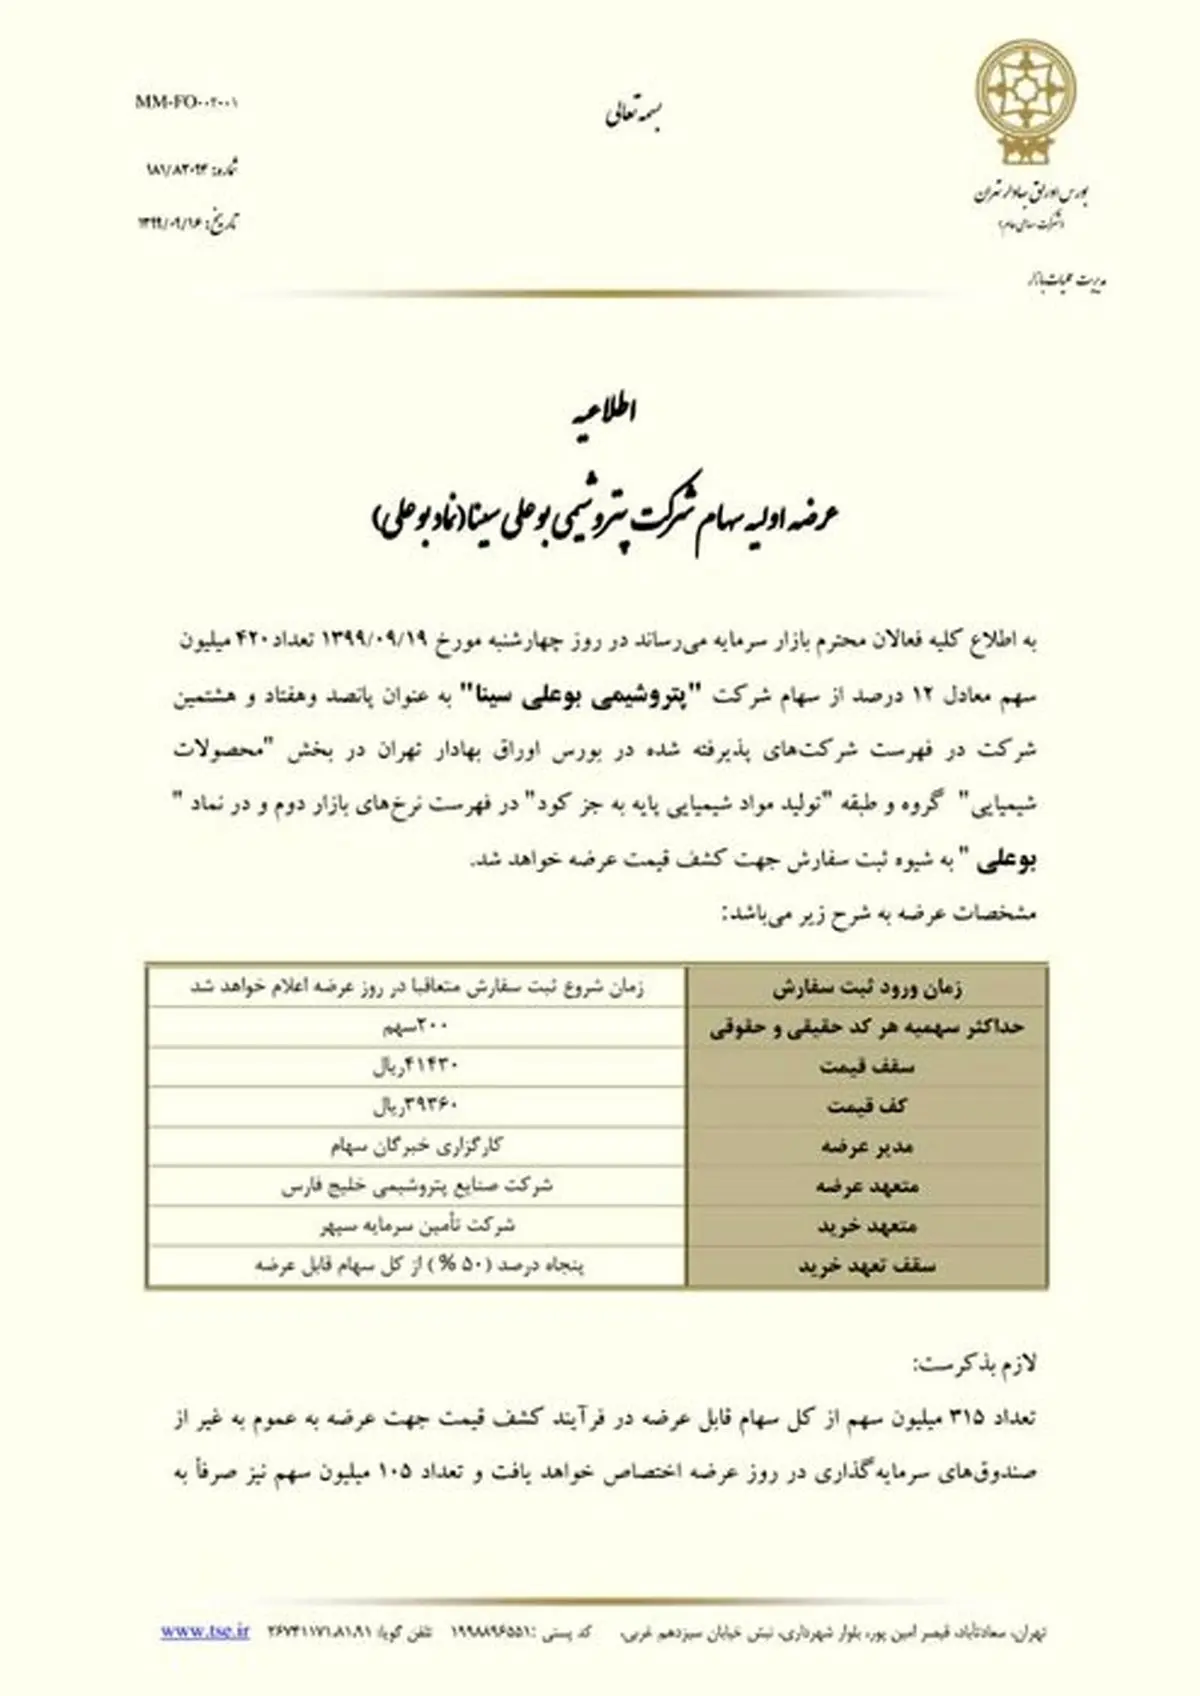 بسمه تعالی
MM-FO-۰۰۲-۰۰۱
شماره: ۱۸۱/۸۳۰۹۴
تاریخ: ۱۳۹۹/۰۹/۱۶
بورس اوراق بهادار تهران
(شرکت سهامی عام)
مدیریت عملیات بازار
اطلاعیه
عرضه اولیه سهام شرکت پتروشیمی بوعلی سینا(نماد بوعلی)
به اطلاع کلیه فعالان محترم بازار سرمایه می‌رساند در روز چهارشنبه مورخ ۱۳۹۹/۰۹/۱۹ تعداد ۴۲۰ میلیون
سهم معادل ۱۲ درصد از سهام شرکت "پتروشیمی بوعلی سینا" به عنوان پانصد وهفتاد و هشتمین
شرکت در فهرست شرکت‌های پذیرفته شده در بورس اوراق بهادار تهران در بخش "محصولات
شیمیایی" گروه و طبقه "تولید مواد شیمیایی پایه به جز کود" در فهرست نرخ‌های بازار دوم و در نماد "
بوعلی " به شیوه ثبت سفارش جهت کشف قیمت عرضه خواهد شد.
مشخصات عرضه به شرح زیر می‌باشد:
زمان ورود ثبت سفارش زمان شروع ثبت سفارش متعاقبا در روز عرضه اعلام خواهد شد
حداکثر سهمیه هر کد حقیقی و حقوقی ۲۰۰سهم
سقف قیمت ۴۱۴۳۰ریال
کف قیمت ۳۹۳۶۰ریال
مدیر عرضه کارگزاری خبرگان سهام
متعهد عرضه شرکت صنایع پتروشیمی خلیج فارس
متعهد خرید شرکت تأمین سرمایه سپهر
سقف تعهد خرید پنجاه درصد (۵۰ %) از کل سهام قابل عرضه
لازم بذکرست:
تعداد ۳۱۵ میلیون سهم از کل سهام قابل عرضه در فرآیند کشف قیمت جهت عرضه به عموم به غیر از
صندوق‌های سرمایه‌گذاری در روز عرضه اختصاص خواهد یافت و تعداد ۱۰۵ میلیون سهم نیز صرفاً به
تهران، سعادتآباد، قیصر امین پور، بلوار شهرداری، نبش خیابان سیزدهم غربی، کد پستی :۱۹۹۸۸۹۶۵۵۱ تلفن گویا: ۲۶۷۴۱۱۷۱،۸۱،۹۱ www.tse.ir